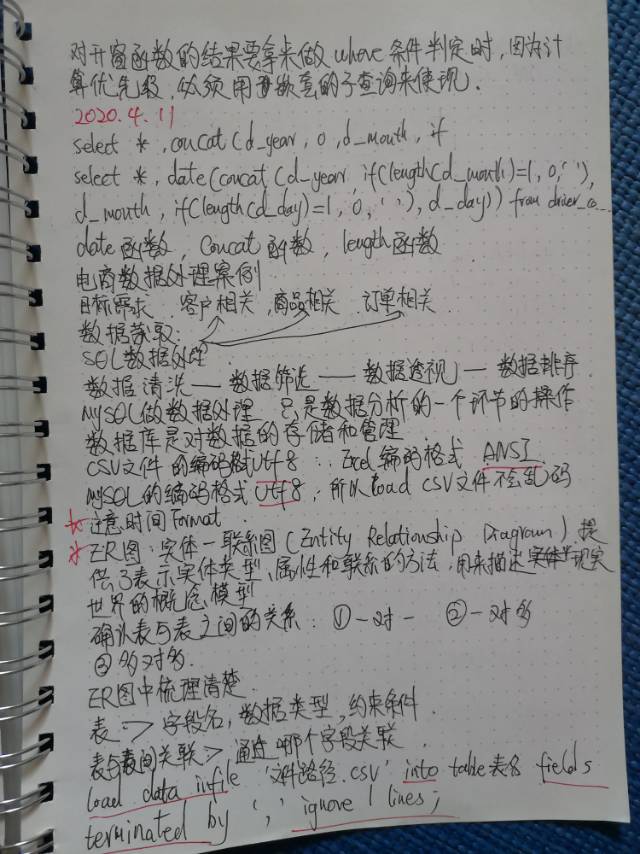 对开窗函数的结果要拿来做 where 条件判定时,因为计
算优先级,必须用嵌套的子查询来使现.
2020.4.11
select *, concat(d_year, 0, d_month, if
select *, date(concat(d_year, if(length(d_month)=1, 0, ''),
d_month, if(length(d_day)=1, 0, ''), d_day)) from
date函数, Concat函数, length函数
电商数据处理案例
目标需求. 客户相关, 商品相关 订单相关.
数据获取.
SQL数据处理.
数据清洗——数据筛选——数据透视——数据排序.
MySQL做数据处理 只是数据分析的一个环节的操作
数据库是对数据的存储和管理
CSV文件的编码格式Utf8 ∴ Excel编码格式 ANSI
MySQL的编码格式Utf8, 所以load CSV文件不会乱码
注意时间Format.
ER图:实体-联系图(Entity Relationship Diagram) 提
供了表示实体类型、属性和联系的方法,用来描述现实
世界的概念模型
确认表与表之间的关系: ①一对一 ②一对多
③多对多.
ER图中梳理清楚.
表 => 字段名, 数据类型, 约束条件
表与表间关联 => 通过哪个字段关联.
load data infile '文件路径.csv' into table 表名 fields
terminated by ',' ignore 1 lines;